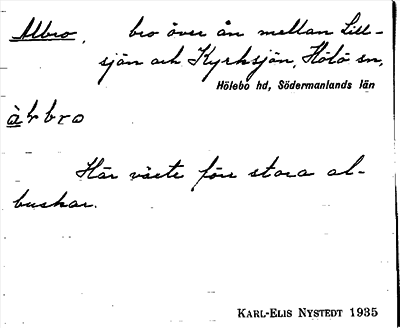 Albro, bro över ån mellan Lill-
sjön och Kyrksjön, Hölö sn,
Hölebo hd, Södermanlands län
Här växte förr stora al-
buskar.
KARL-ELIS NYSTEDT 1935